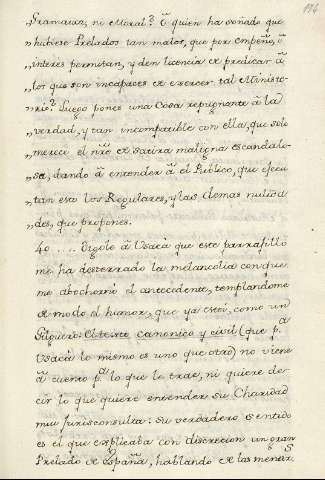 194
„Gramatica, ni Moral? O quien ha soñado que
„hubiese Prelados tan malos, que por empeño, ó
„interes permitan, y den licencia de predicar á
„los que son incapaces de exercer tal Ministe-
„rio? Luego pones una Cosa repugnante á la
„verdad, y tan incompatible con ella, que solo
„merece el nre de satira maligna escandalo-
„sa, dando á entender á el Publico, que ejecu
„tan esto los Regulares, y las demas nulida-
„des, que propones.
40 .... Digole á Usacé que este parrafillo
me ha desterrado la melancolia con que
me abochornó el antecedente, templandome
de modo el humor, que ya estoi, como un
Gilguero: El texto canonico y civil (que pa
Usacé lo mismo es uno que otro) no viene
á cuento pa lo que le trae, ni quiere de-
cir lo que quiere entender su Charidad
mui Jurisconsulta: su verdadero sentido
es el que explicaba con discrecion un gran
Prelado de España, hablando de las menores